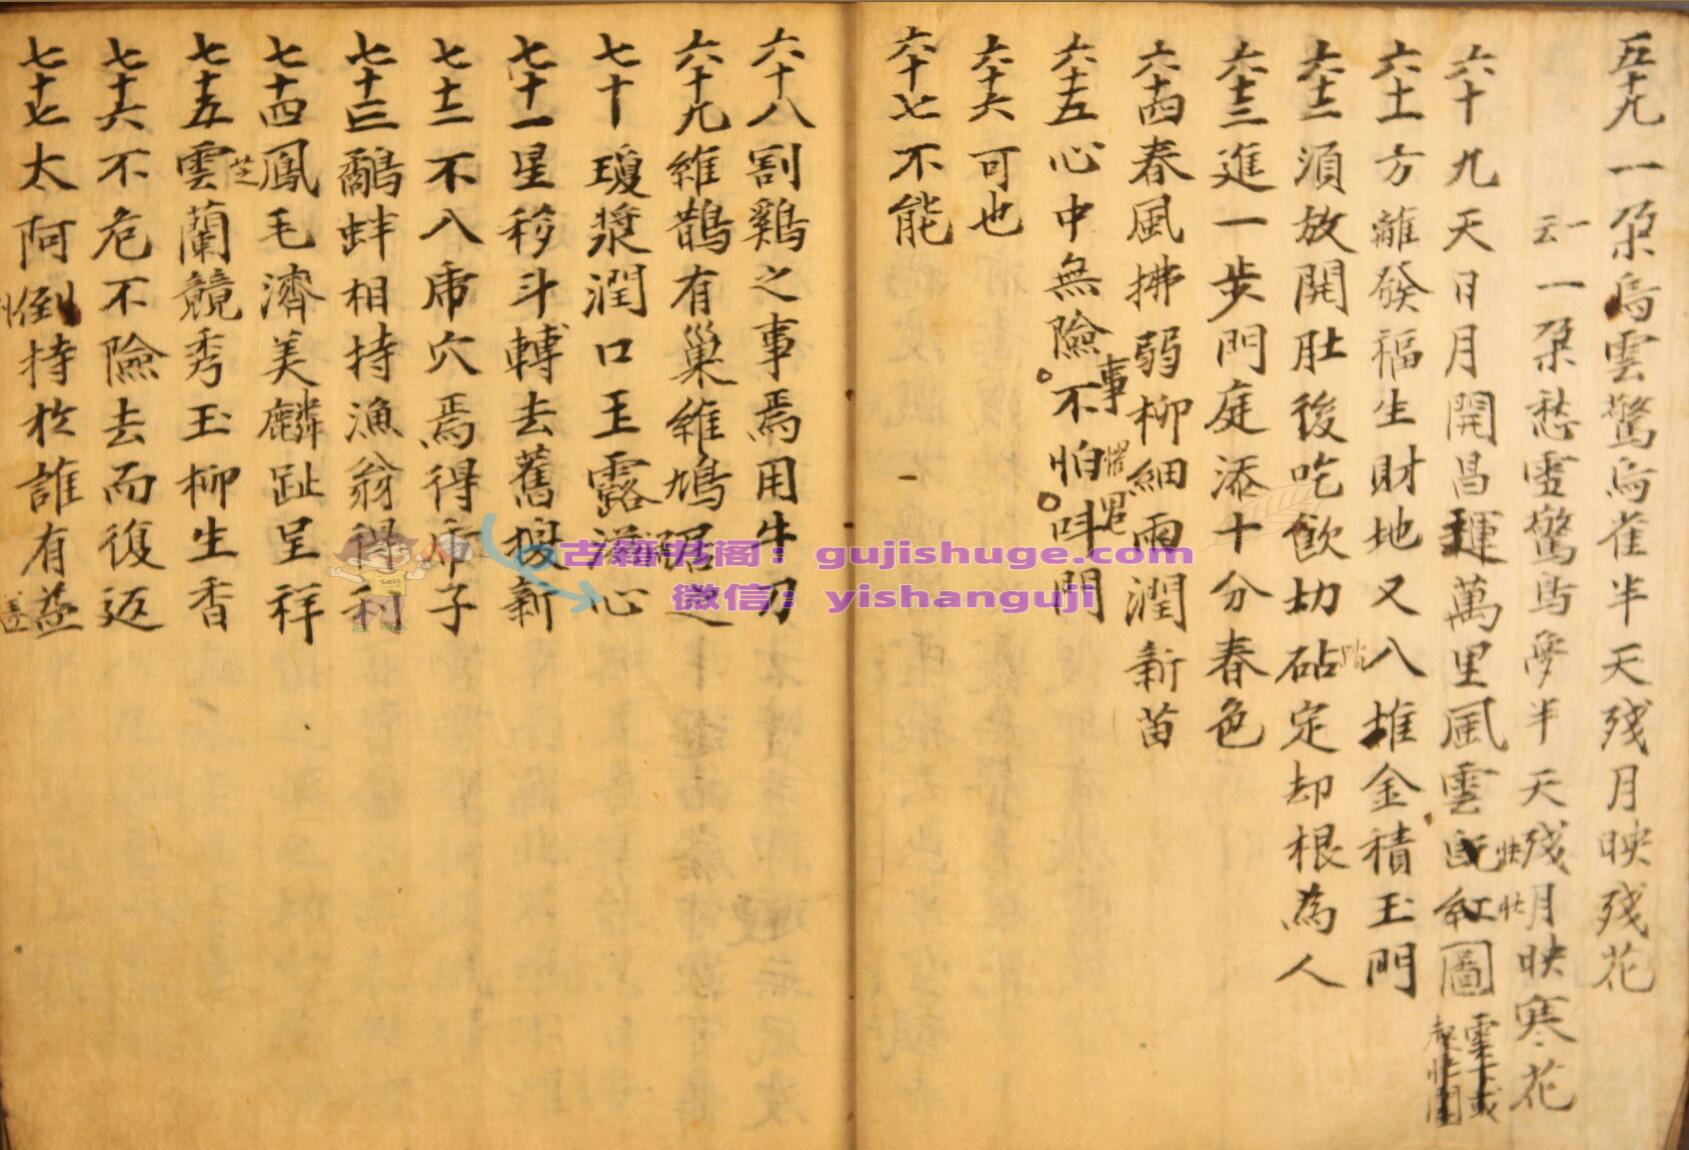 五十九一朶烏雲驚烏雀半天残月映残花
一云一朶愁雲驚鳥夢半天残月映寒花
六十九天日月開昌運萬里風雲 紅圖
雲下或
起壯圖
壯
壯
六十一方離發福生財地又八堆金積玉門
六十二須放開肚後吃飲切砧定却根為人
踏
六十三進一步門庭添十分春色
六十四春風拂弱柳細雨潤新苗
六十五心中無險事不怕叫門
六十六可也
六十七不能
六十八割鷄之事焉用牛刀
六十九維鵲有巢維鳩居
七十瓊漿潤口玉露 心
七十一星移斗轉去舊換新
七十二不入虎穴焉得虎子
七十三鷸蚌相持漁翁得利
七十四鳳毛濟美麟趾呈祥
七十五雲蘭競秀玉柳生香
芝
七十六不危不險去而復返
七十七太阿倒持於誰有益
古籍书阁：gujishuge.com
微信：yishanguji